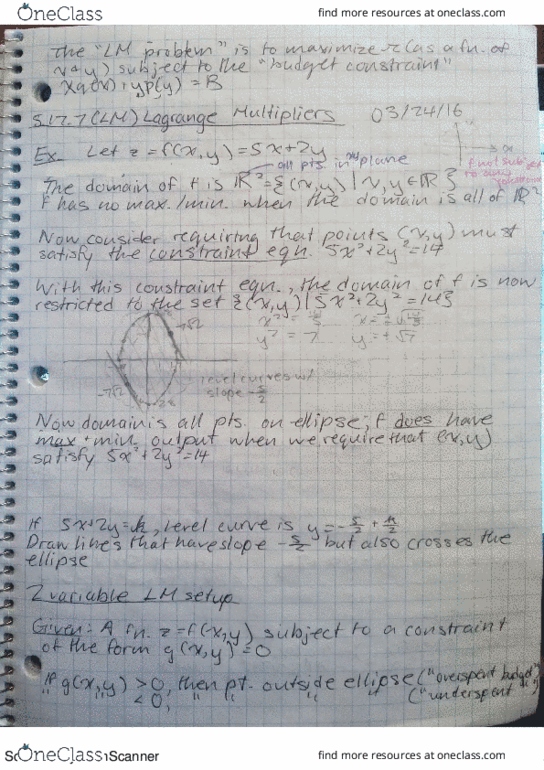 OneClass
find more resources at oneclass.com
The "LM problem" is to maximize z (as a fn. of
x & y) subject to the "budget constraint"
xq(x) + yp(y) = B
S.17.7 (LM) Lagrange Multipliers 03/24/16
Ex. Let z = f(x,y) = 5x+2y
all pts. in plane
f not subject
to any
The domain of f is ℝ² = {(x,y) | x,y ∈ ℝ}
f has no max./min. when the domain is all of ℝ²
Now consider requiring that points (x,y) must
satisfy the constraint eqn. 5x²+2y²=14
With this constraint eqn., the domain of f is now
restricted to the set {(x,y) | 5x²+2y²=14}
y² = 7 y = ±√7
level curves w/
slope -5/2
Now domain is all pts. on ellipse; f does have
max + min. output when we require that (x,y)
satisfy 5x²+2y²=14
If 5x+2y=k, level curve is y = -5/2 + k/2
Draw lines that have slope -5/2 but also crosses the
ellipse
2 variable LM setup
Given: A fn. z = f(x,y) subject to a constraint
of the form g(x,y) = 0
If g(x,y) > 0, then pt. outside ellipse ("overspent budget")
" " < 0, " " " " ("underspent " ")
OneClass
Scanner
find more resources at oneclass.com